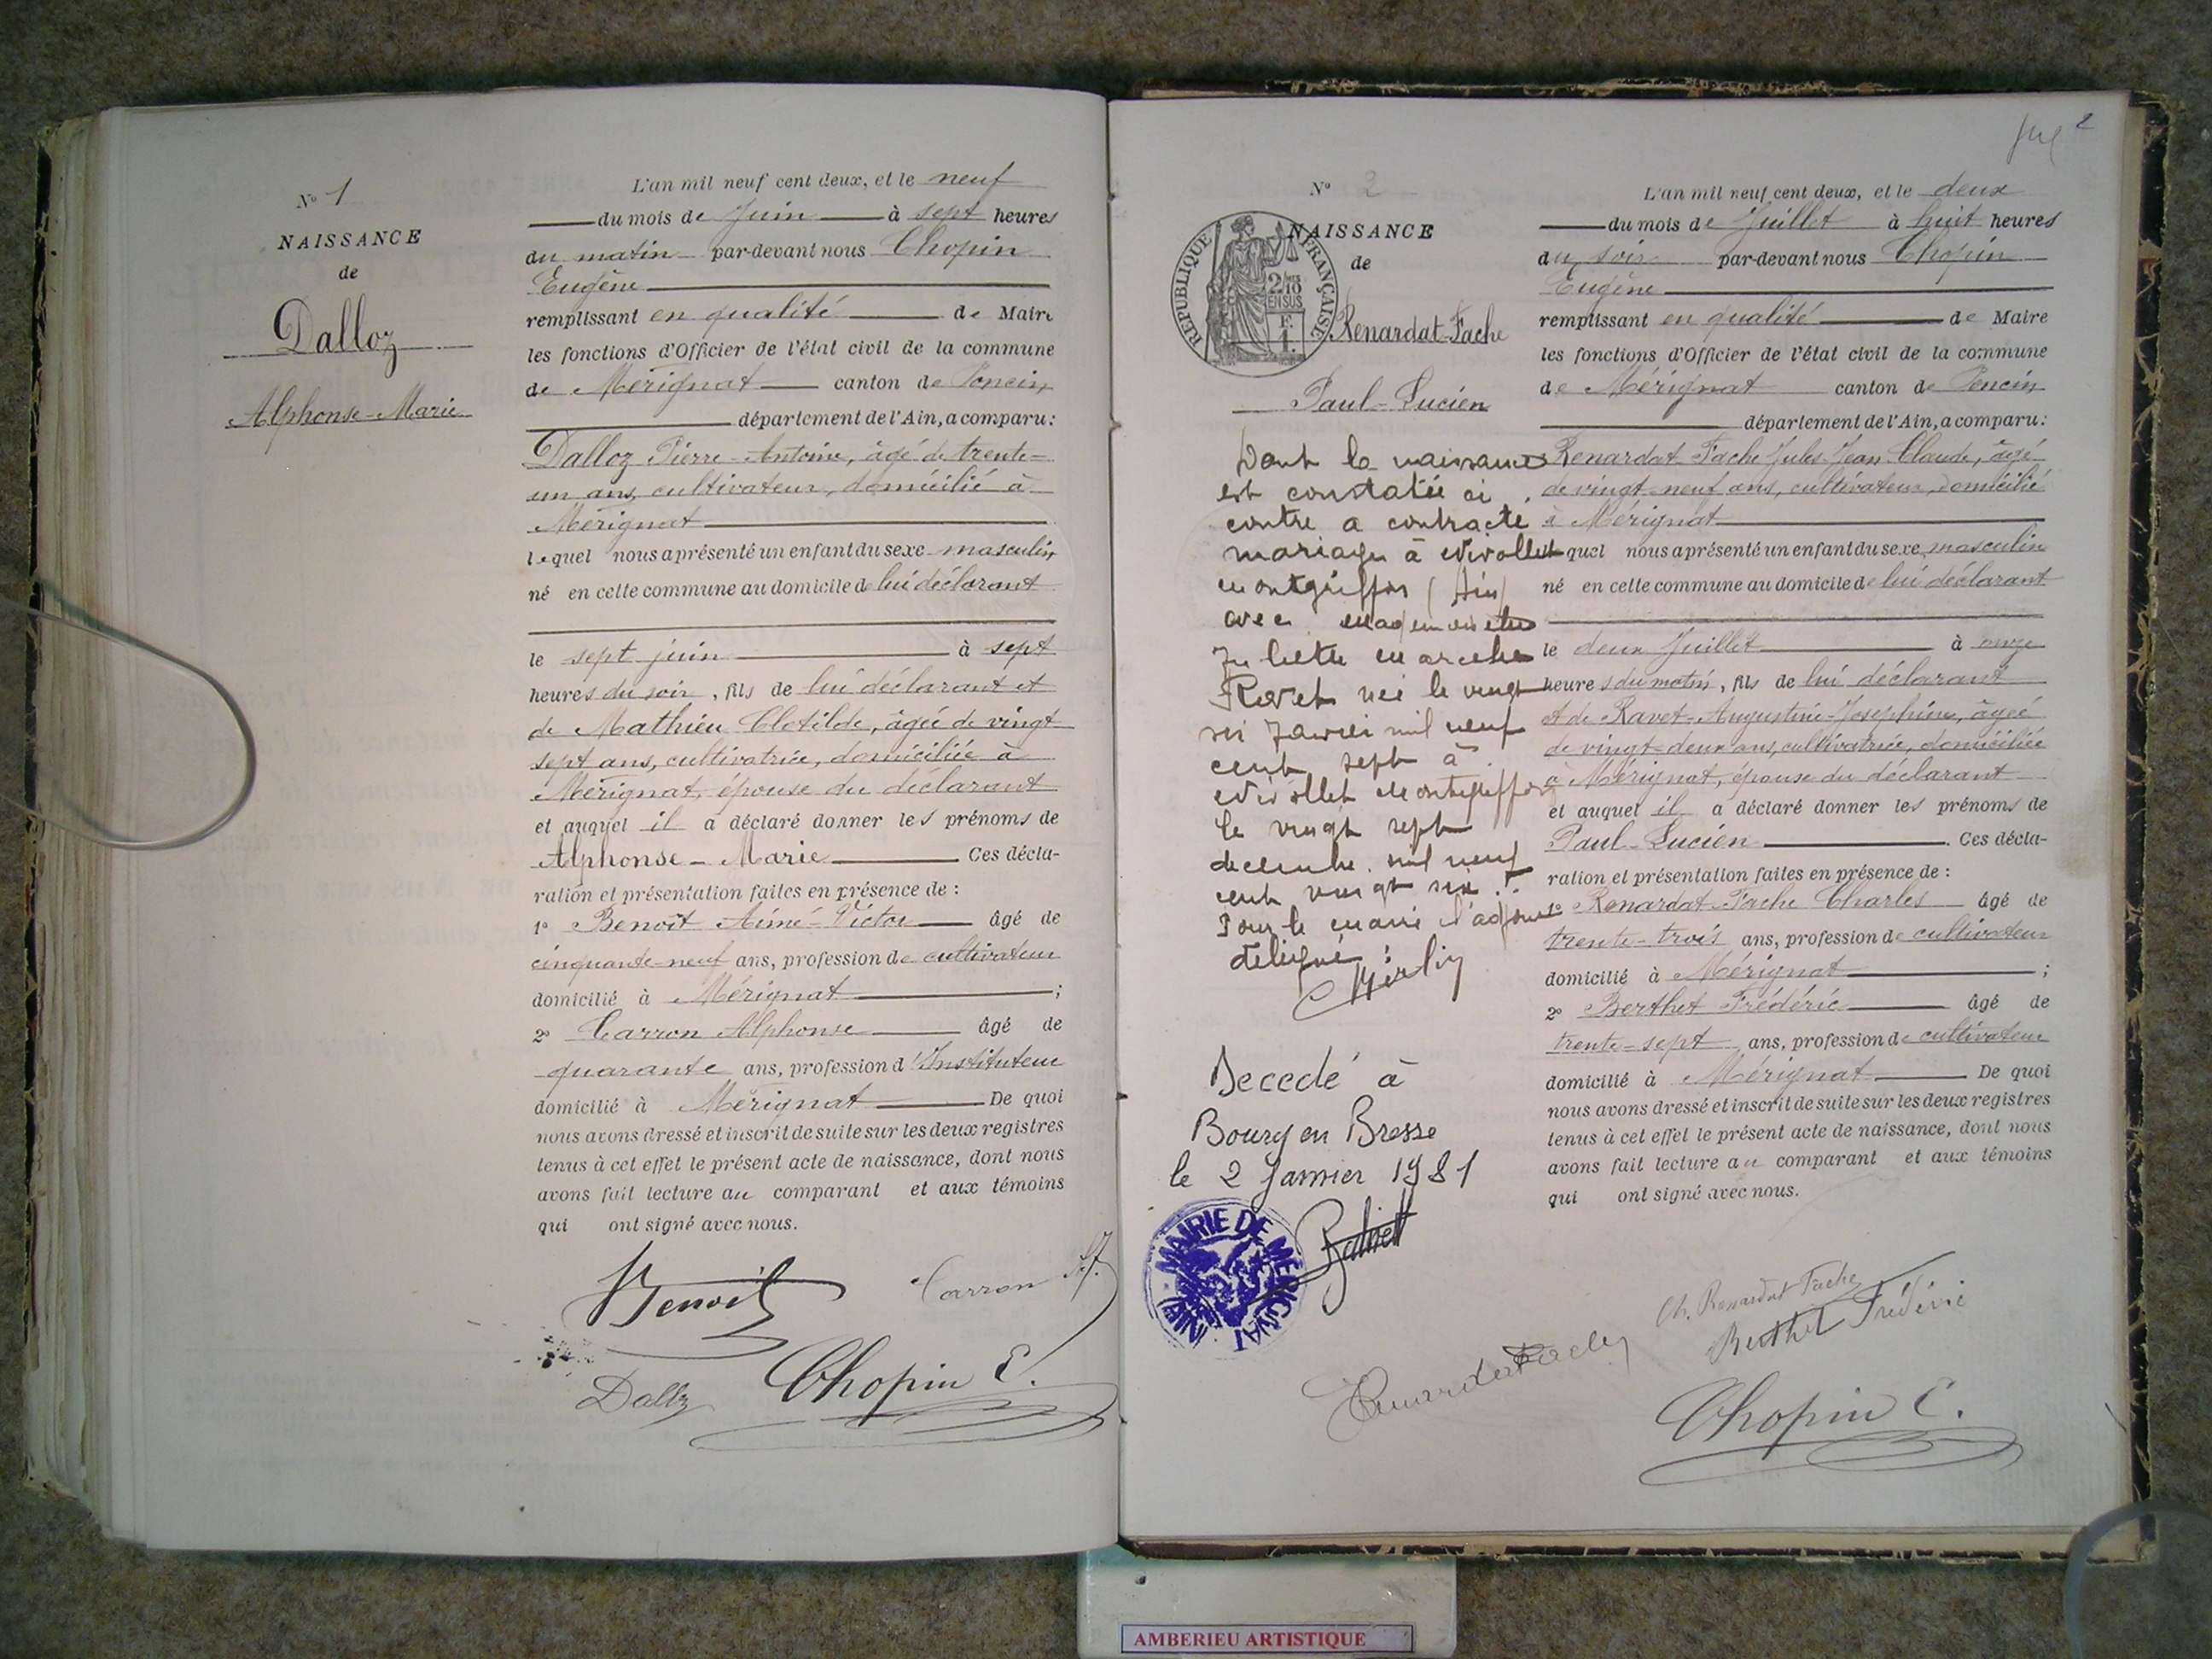 N° 1
NAISSANCE
de
Dalloz
Alphonse-Marie
L'an mil neuf cent deux, et le neuf
du mois de Juin à sept heures
du matin par-devant nous Chopin
Eugène
remplissant en qualité de Maire
les fonctions d'Officier de l'état civil de la commune
de Mérignat canton de Poncin,
département de l'Ain, a comparu:
Dalloz Pierre-Antoine, âgé de trente-
un ans, cultivateur, domicilié à
Mérignat
lequel nous a présenté un enfant du sexe masculin,
né en cette commune au domicile de lui déclarant
le sept juin à sept
heures du soir, fils de lui déclarant et
de Mathieu Clotilde, âgée de vingt
sept ans, cultivatrice, domiciliée à
Mérignat, épouse du déclarant
et auquel il a déclaré donner les prénoms de
Alphonse-Marie Ces décla-
ration et présentation faites en présence de :
1° Benoît Aimé-Victor âgé de
cinquante-neuf ans, profession de cultivateur
domicilié à Mérignat ;
2° Carron Alphonse âgé de
quarante ans, profession d'Instituteur
domicilié à Mérignat De quoi
nous avons dressé et inscrit de suite sur les deux registres
tenus à cet effet le présent acte de naissance, dont nous
avons fait lecture au comparant et aux témoins
qui ont signé avec nous.
Benoit
Carron
Dalloz
Chopin E.
2
N° 2
NAISSANCE
de
REPUBLIQUE FRANÇAISE
2/10
EN SUS
Renardat-Fache
Paul-Lucien
Dont la naissance
est constatée ci
contre a contracté
mariage à Nivollet
Montgriffon (Ain)
avec mademoiselle
Juliette Marcelle
Ravet née le vingt
six janvier mil neuf
cent sept à
Nivollet Montgriffon
le vingt sept
decembre mil neuf
cent vingt six.
Pour le maire l'adjoint
délégué :
Décédé à
Bourg en Bresse
le 2 Janvier 1981
MAIRIE DE MERIGNAT
L'an mil neuf cent deux, et le deux
du mois de Juillet à huit heures
du soir par-devant nous Chopin
Eugène
remplissant en qualité de Maire
les fonctions d'Officier de l'état civil de la commune
de Mérignat canton de Poncin
département de l'Ain, a comparu:
Renardat-Fache Jules-Jean-Claude, âgé
de vingt-neuf ans, cultivateur, domicilié
à Mérignat
lequel nous a présenté un enfant du sexe masculin
né en cette commune au domicile de lui déclarant
le deux Juillet à onze
heures du matin, fils de lui déclarant
et de Ravet-Augustine-Joséphine, âgée
de vingt-deux ans, cultivatrice, domiciliée
à Mérignat, épouse du déclarant
et auquel il a déclaré donner les prénoms de
Paul-Lucien . Ces décla-
ration et présentation faites en présence de :
1° Renardat-Fache Charles âgé de
trente-trois ans, profession de cultivateur
domicilié à Mérignat ;
2° Berthet Frédéric âgé de
trente-sept ans, profession de cultivateur
domicilié à Mérignat De quoi
nous avons dressé et inscrit de suite sur les deux registres
tenus à cet effet le présent acte de naissance, dont nous
avons fait lecture au comparant et aux témoins
qui ont signé avec nous.
Ch. Renardat Fache
Berthet Frédéric
Renardat Fache
Chopin E.
AMBERIEU ARTISTIQUE